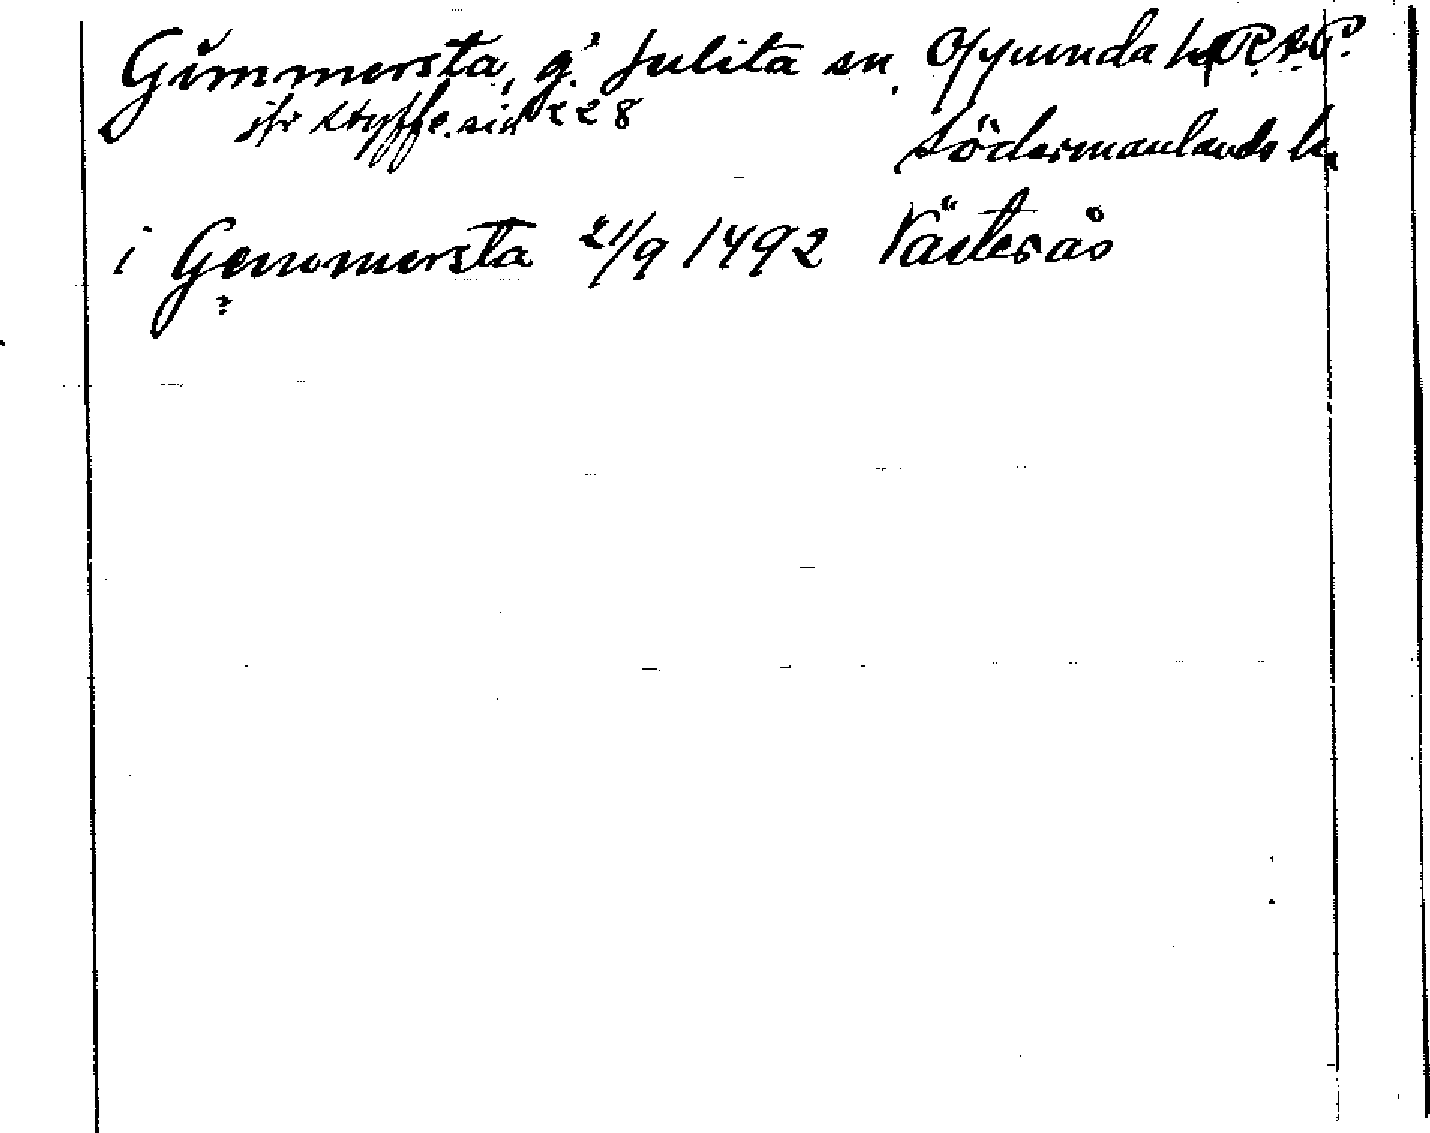 Gimmersta, g. Julita sn. Oppunda hd
jfr Styffe. sid 228
Södermanlands l.
i Gemmersta 21/9 1492 Västerås